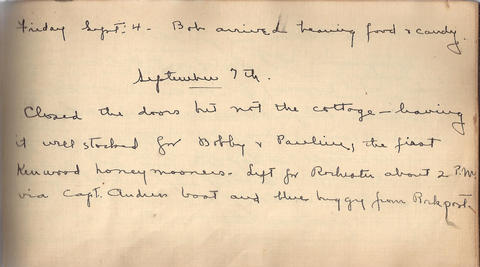 Friday Sept: 4 - Bob arrived bearing food & candy.
September 7th.
Closed the doors but not the cottage - leaving
it well stocked for Bobby & Pauline, the first
Kenwood honeymooners. Left for Rochester about 2 P.M.
via Capt. Andress boat and blue buggy from